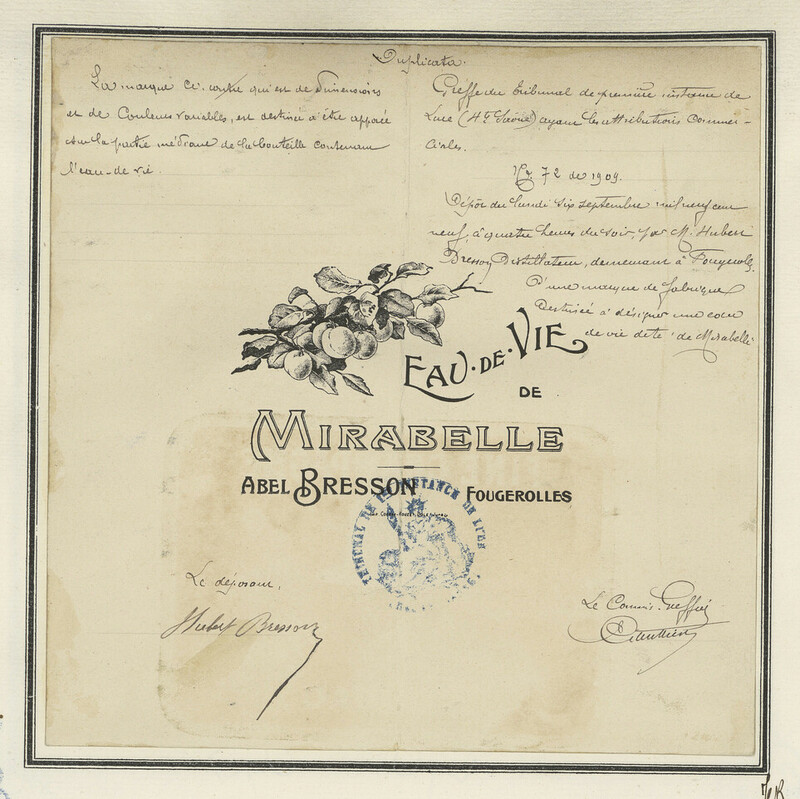 Duplicata.
La marque ci-contre qui est de dimensions
et de couleurs variables, est destinée à être apposée
sur la partie médiane de la bouteille contenant
l'eau-de-vie.
Greffe du tribunal de première instance de
Lure (Hte Saône) ayant les attributions commer-
ciales.
No 72 de 1909.
Dépôt du lundi six septembre mil neuf cent
neuf, à quatre heures du soir, par M. Hubert
Bresson Distillateur, demeurant à Fougerolles,
D'une marque de fabrique
Destinée à désigner une eau
de vie dite "de Mirabelle
EAU-DE-VIE
DE
MIRABELLE
ABEL BRESSON FOUGEROLLES
TRIBUNAL DE 1RE INSTANCE DE LURE
Le déposant,
Hubert Bresson
Le Commis-Greffier